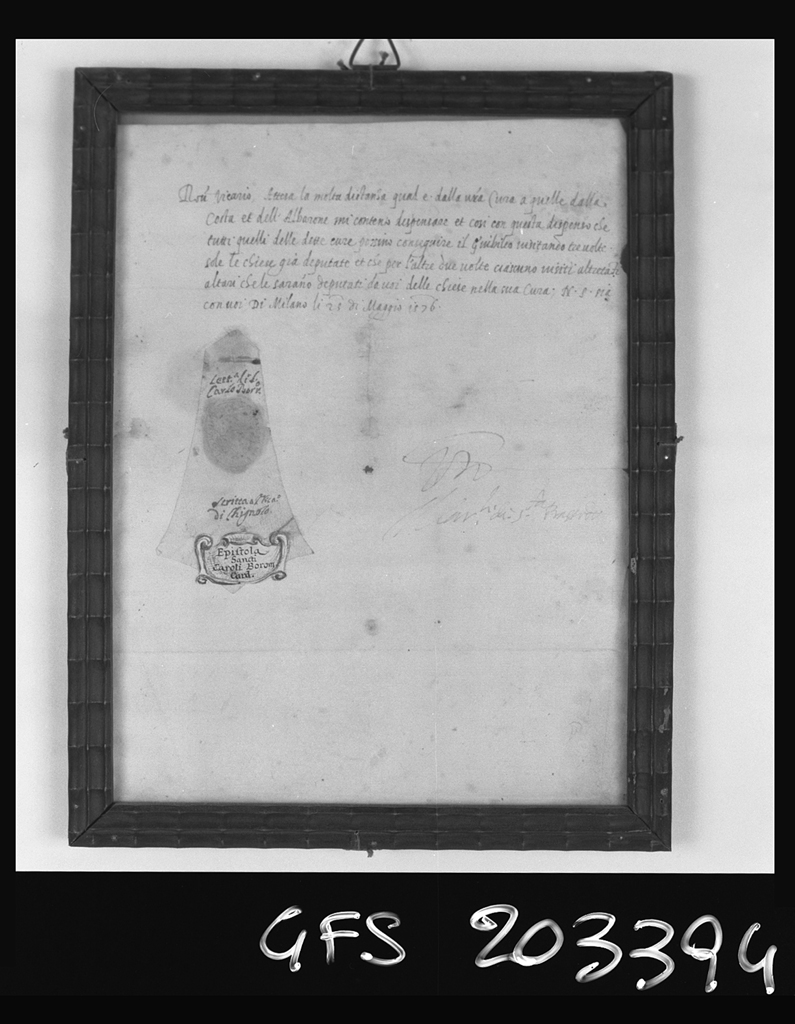 Vicario. Attesa la molta distantia qual è dalla vr̃a Cura a quelle dalla
Costa et dell' Albarone mi contento dispensare et cosi con questa dispenso che
tutti quelli delle dette cure possino conseguire il Giubileo visitando tre volte
sole le chiese già deputate et che per l'altre due volte ciascuno visiti
altari che le sarano deputati da voi delle chiese nella sua Cura; N. S.
con voi Di Milano li 25 di Maggio 1576.
Lett.a di S.
Carlo Borr.
Scritta
di Chignolo.
Epistola
Sancti
Caroli Borom
Card.
GFS 203394